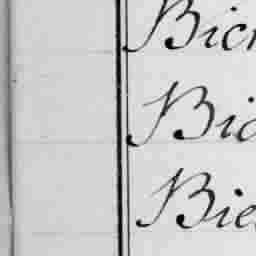 Bicr
Bid
Bie